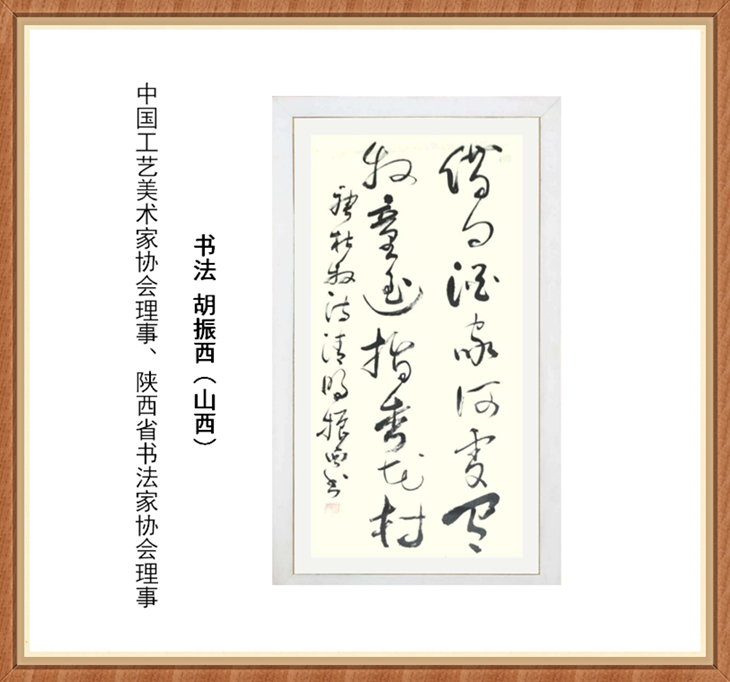 借問酒家何處有
牧童遥指杏花村
杜牧诗清明振西书
书法 胡振西（山西）
中国工艺美术家协会理事、陕西省书法家协会理事